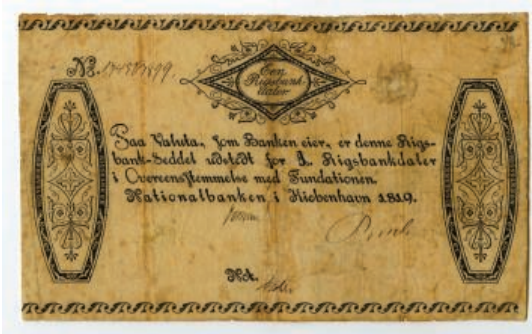 Een
Rigsbank-
daler
No.
Paa Valuta, som Banken eier, er denne Rigs-
bank-Seddel udstedt for 1. Rigsbankdaler
i Overeensstemmelse med Fundationen.
Nationalbanken i Kiöbenhavn 1819.
Not.